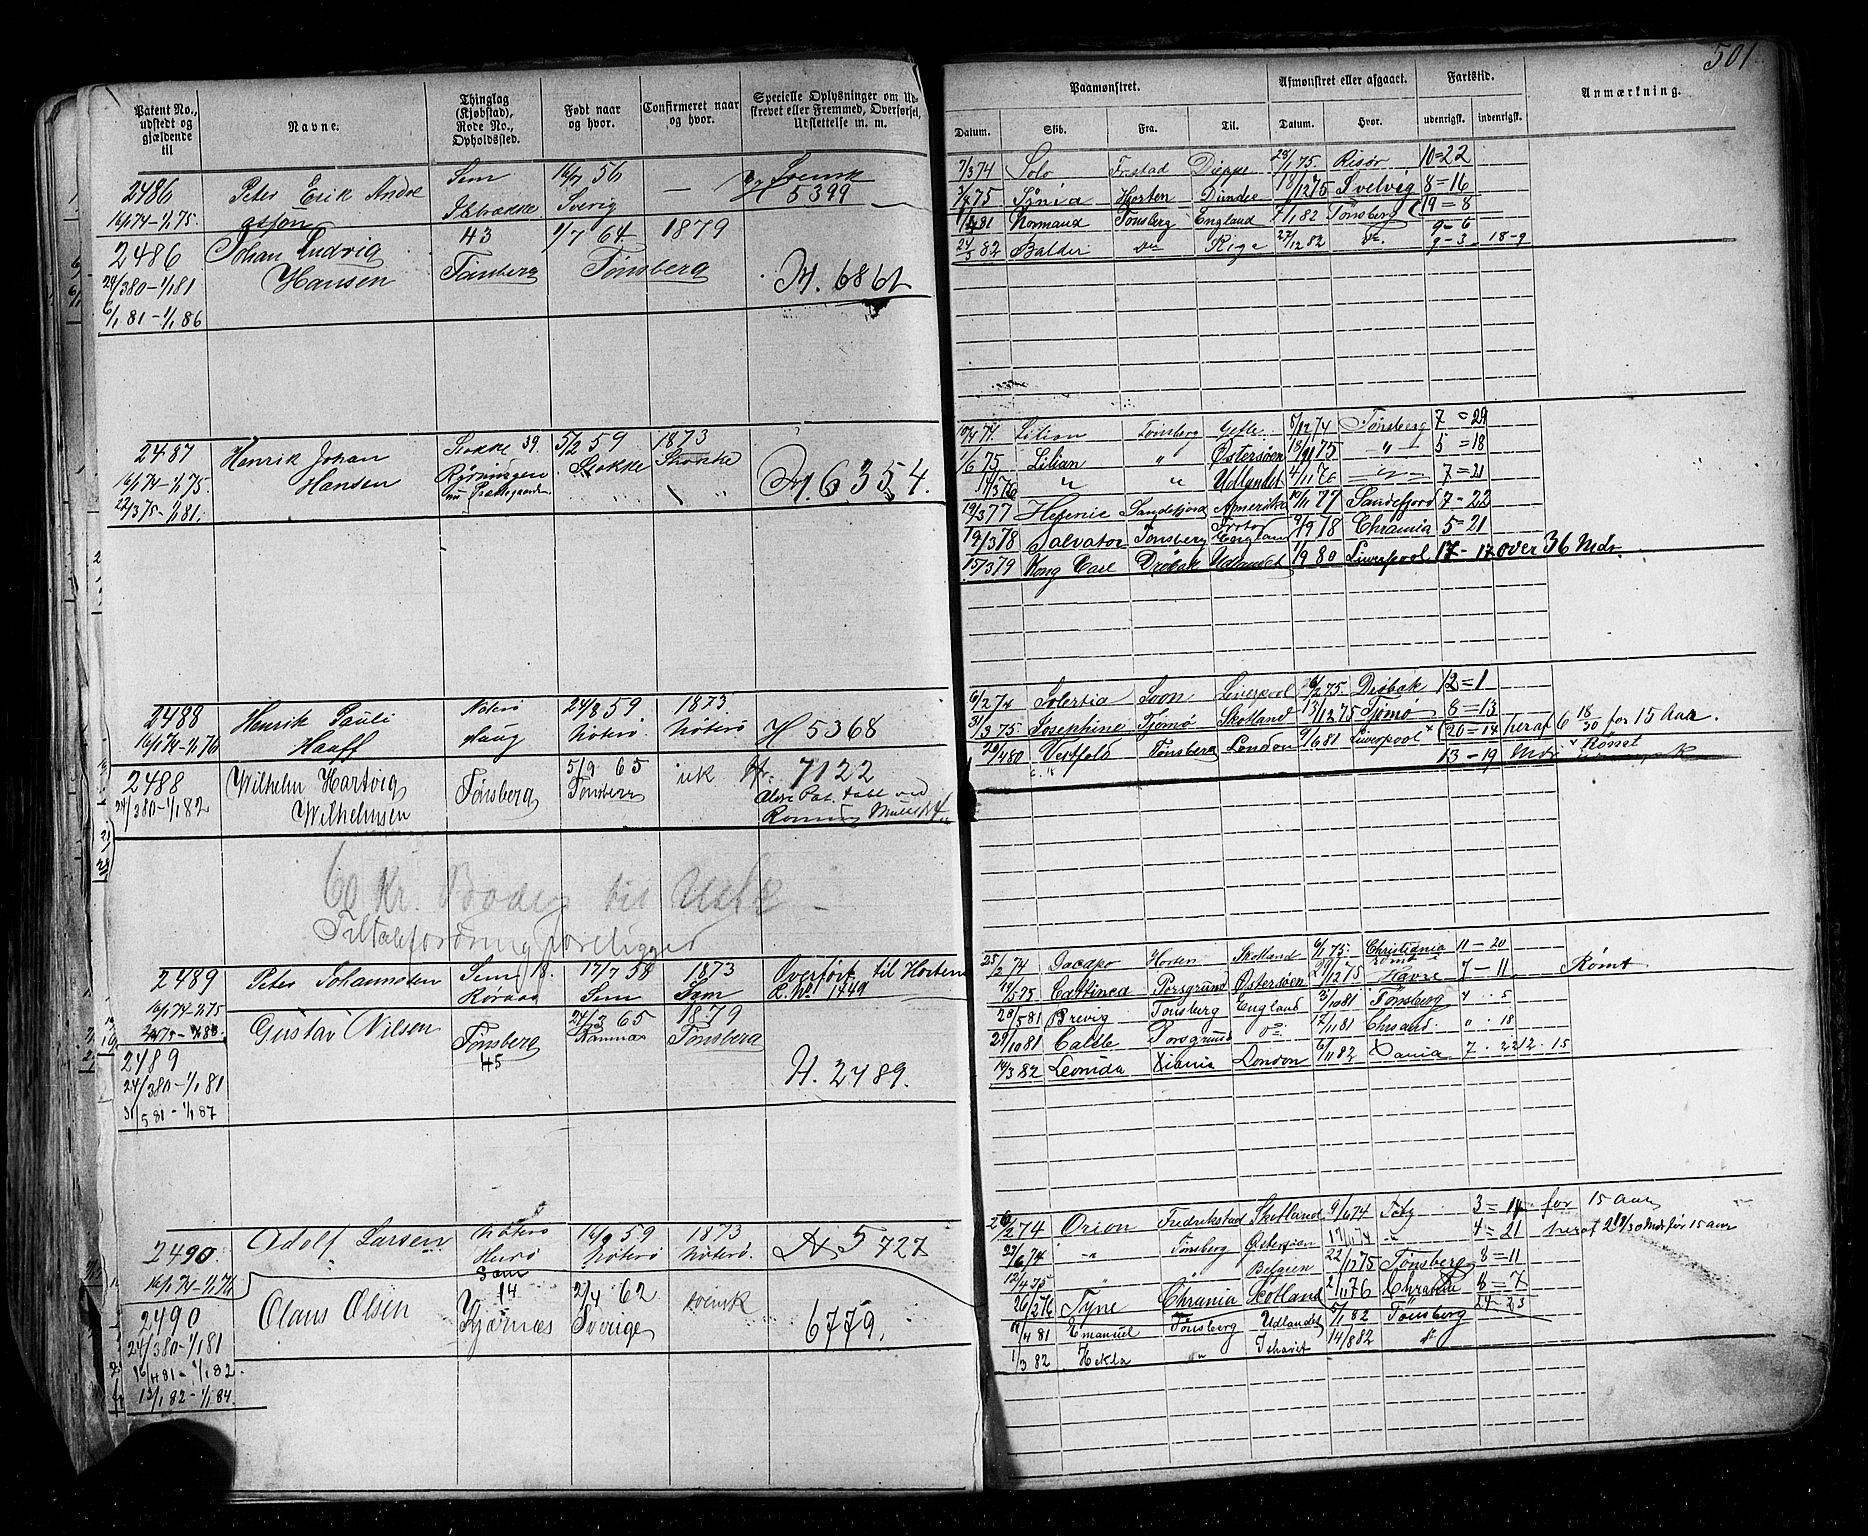 501
Patent No., udstedt og gjældende til
Navne.
Thinglag (Kjøbstad), Rode No., Opholdssted.
Født naar og hvor.
Confirmeret naar og hvor.
Specielle Oplysninger om Udskrevet eller Fremmed, Overførsel, Udslettelse m. m.
2486 Peter Erik Andre Sem 16/7 56 — Svensk
16/1 74 - 1/1 75. asson Sverig H 5399
2486 Johan Ludvig 43 1/7 64 1879
24/3 80 - 1/1 81 Hansen Tønsberg Tønsberg H. 6861
6/1 81 - 1/1 86
2487 Henrik Johan Stokke 39. 5/2 59 1873
16/1 74 - 1/1 75. Hansen Stokke Stokke H. 6354.
22/3 75 - 1/1 81.
2488 Henrik Pauli Nøterø 24/8 59 1873
16/1 74 - 1/1 76 Haaff Haug Nøterø. Nøterø H 5368
2488 Wilhelm Hartvig Tønsberg 5/9 65 uk 7122
24/3 80 - 1/1 82 Wilhelmsen Tønsberg
60 Kr. Böder til
Tiltaleforening foreligger
2489 Peter Johannsten Sem 18. 17/7 58 1873 Overført til Horten
16/1 74 - 1/1 75 Røraas Sem Sem R. No 1449
Gustav Nilsen Tønsberg 24/3 65 1879
2489 45 Ramnæs Tønsberg
24/3 80 - 1/1 81 H. 2489.
31/5 81 - 1/1 87
2490 Adolf Larsen Nøterø 16/9 59 1873 H 5727
16/1 74 - 1/1 76 Nøterø Nøterø.
Sem
2490 Olaus Olsen 14 2/4 62 svensk
24/3 80 - 1/1 81 Kjærnæs Sverige 6779.
16/4 81 - 1/1 82.
13/1 82 - 1/1 84.
Paamønstret.
Afmønstret eller afgaaet.
Fartstid.
Anmærkning.
Datum. Skib. Fra. Til. Datum. Hvor. udenrigsk. indenrigsk.
7/3 74 Solo Frstad Dieppe 28/1 75. Risør 10=22
3/4 75 Horten Dundee 12 75 Svelvig 8=16
Normand Tønsberg England 1/1 82 Tønsberg 19=8
9-6
24/5 82 Balder Do Riga 27/12 82 Do. 9-3 18-9
10/4 74. Lilian Tønsberg Gefle 5/12 74 Tønsberg 7=29
1/6 75 Lilian " Østersøen 75 " 5=18
14/3 76 " " Udlandet 4/11 76 " 7=21
19/3 77 Sandefjord Amerika 10/11 77 Sandefjord 7-22
19/3 78 Salvator Tønsberg England 9/9 78 Chrania 5=21
15/3 79 Kong Carl Drøbak Udlandet 1/9 80 Liverpool 17-17 over 36 Mdr.
6/2 74 Solertia Soon Liverpool 75 Drøbak 12=1
31/3 75. Josephine Tjømø Skotland 13/12 75 Tjømø 8=13
4 80 Vestfold Tønsberg London 9/6 81 Liverpool 20=14 heraf 6 18/30 for 15 Aar.
13-19 Mdr Rømt
25/2 74 Horten Skotland 6/1 75. Christiania 11-20
5 75 Porsgrund Østersøen 12 75 Havre 7-11 Rømt
28/5 81 Brevig Tønsberg England 3/10 81 Tønsberg 4.5
29/10 81 Porsgrund Do 12/11 81 Chrsand ". 18
14/3 82 Leonida Xiania London 6/11 82 Xania 7. 22 12. 15
26/2 74 Orion Fredrikstad Skotland 9/6 74 3=14 for 15 aar
27/6 74 " Tønsberg Østersøen 17/11 74 " 4=21 heraf 2 18/30 Mdr for 15 aar
12/4 75 " Belgien 22/12 75 Tønsberg 8=11
26/2 76 Tyne Chrania Skotland 2/11 76 Chrania 8=7
19/4 81 Emanuel Tønsberg Udlandet 5/1 82 Tønsberg 24-23
1/3 82 Hekla " Ishavet 14/8 82